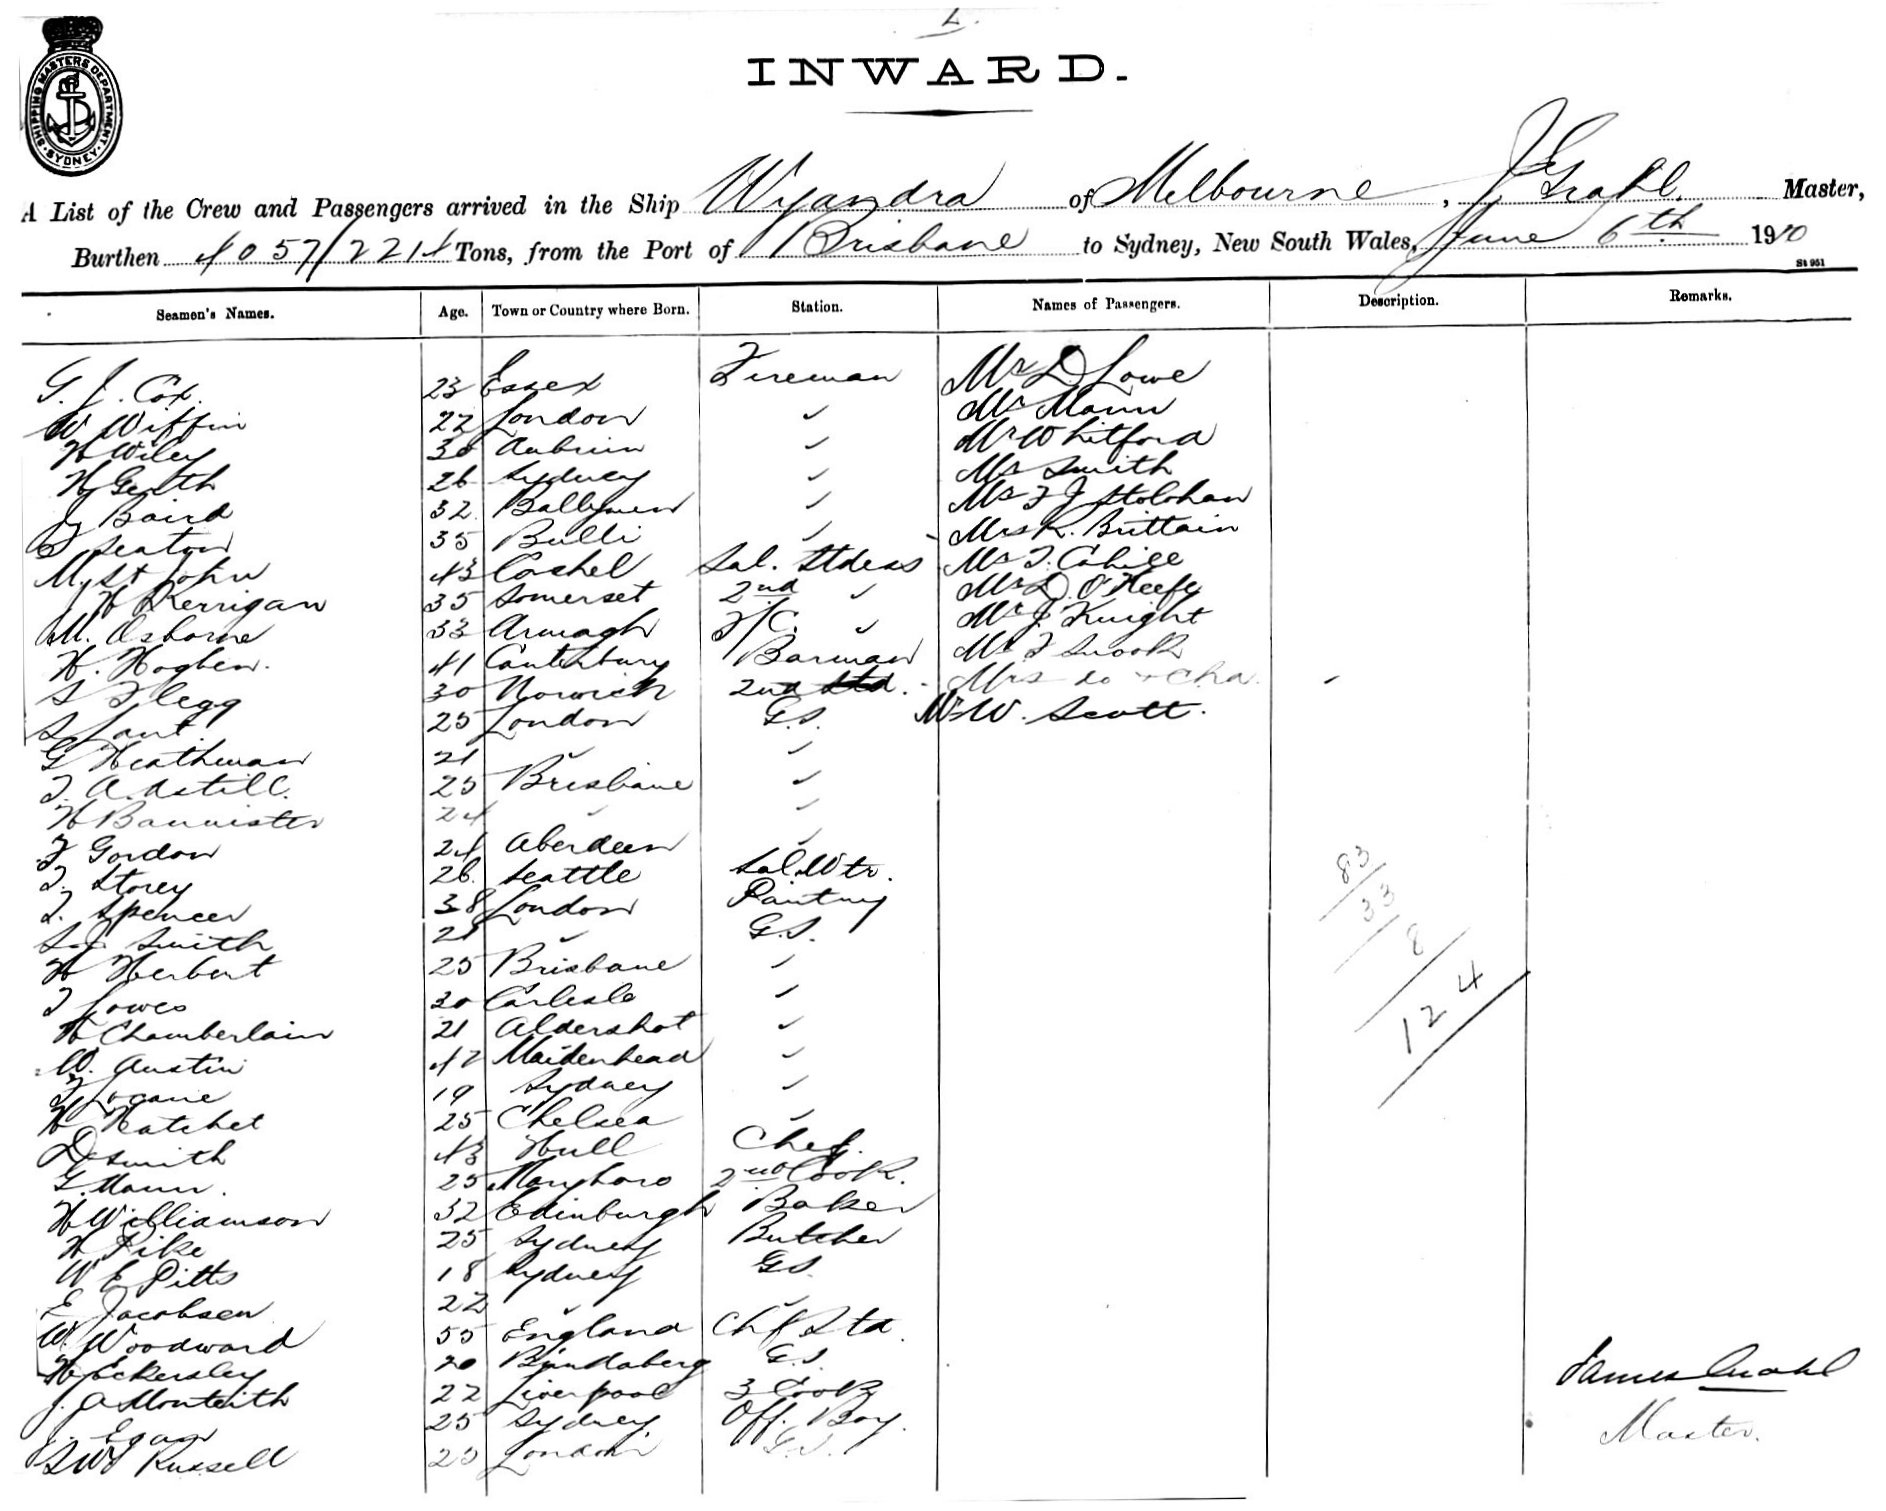 2.
INWARD.
SHIPPING MASTERS DEPARTMENT. SYDNEY.
A List of the Crew and Passengers arrived in the Ship Wyandra of Melbourne, J Grahl. Master,
Burthen 4057/2214 Tons, from the Port of Brisbane to Sydney, New South Wales, June 6th 1910
St 951
Seamen's Names. Age. Town or Country where Born. Station. Names of Passengers. Description. Remarks.
G. J. Cox. 23 Essex Fireman Mr D. Lowe
W Wiffin 22 London " Mr Mann
H Wiley 30 " Mr Whitford
H Genth 26 Sydney " Mr Smith
J Baird 32 " Mr F J
Seaton 35 Bulli " Mrs R. Brittain
M. St John 43 Cashel Sal. Stdess Mr T. Cahill
H Kerrigan 35 Somerset 2nd " Mr D. O'Keefe
M. Osborne 33 Armagh F/C. " Mr J Knight
H. Hogben. 41 Canterbury Barman Mr F Snook
S Flegg 30 Norwich 2nd Std. Mrs do + Chd.
S Lant. 25 London G.S. Mr W. Scott.
G Heathman 21 " "
T. A. Astill. 25 Brisbane "
H Bannister 24 " "
F Gordon 24 Aberdeen "
T. Storey 26. Seattle Sal. Wtr.
T. Spencer 38 London Pantry
Smith 21 " G.S.
H Herbert 25 Brisbane "
T Lowes 30 Carlisle "
H Chamberlain 21 Aldershot "
W. Austin 42 Maidenhead "
19 Sydney "
H Hatchet 25 Chelsea "
D Smith 43 Hull Chef.
G. Mann. 25 Maryboro 2nd Cook.
H Williamson 32 Edinburgh Baker
H Pike 25 Sydney Butcher
W E Pitts 18 Sydney G.S.
E Jacobsen 22 " "
W. Woodward 55 England Chf Std.
H Eckersley 20 Bundaberg G.S.
J. A Monteith 22 Liverpool 3 Cook
J. Egan 25 Sydney Off. Boy.
Russell 25 London G.S.
83
33
8
124
James Grahl
Master.